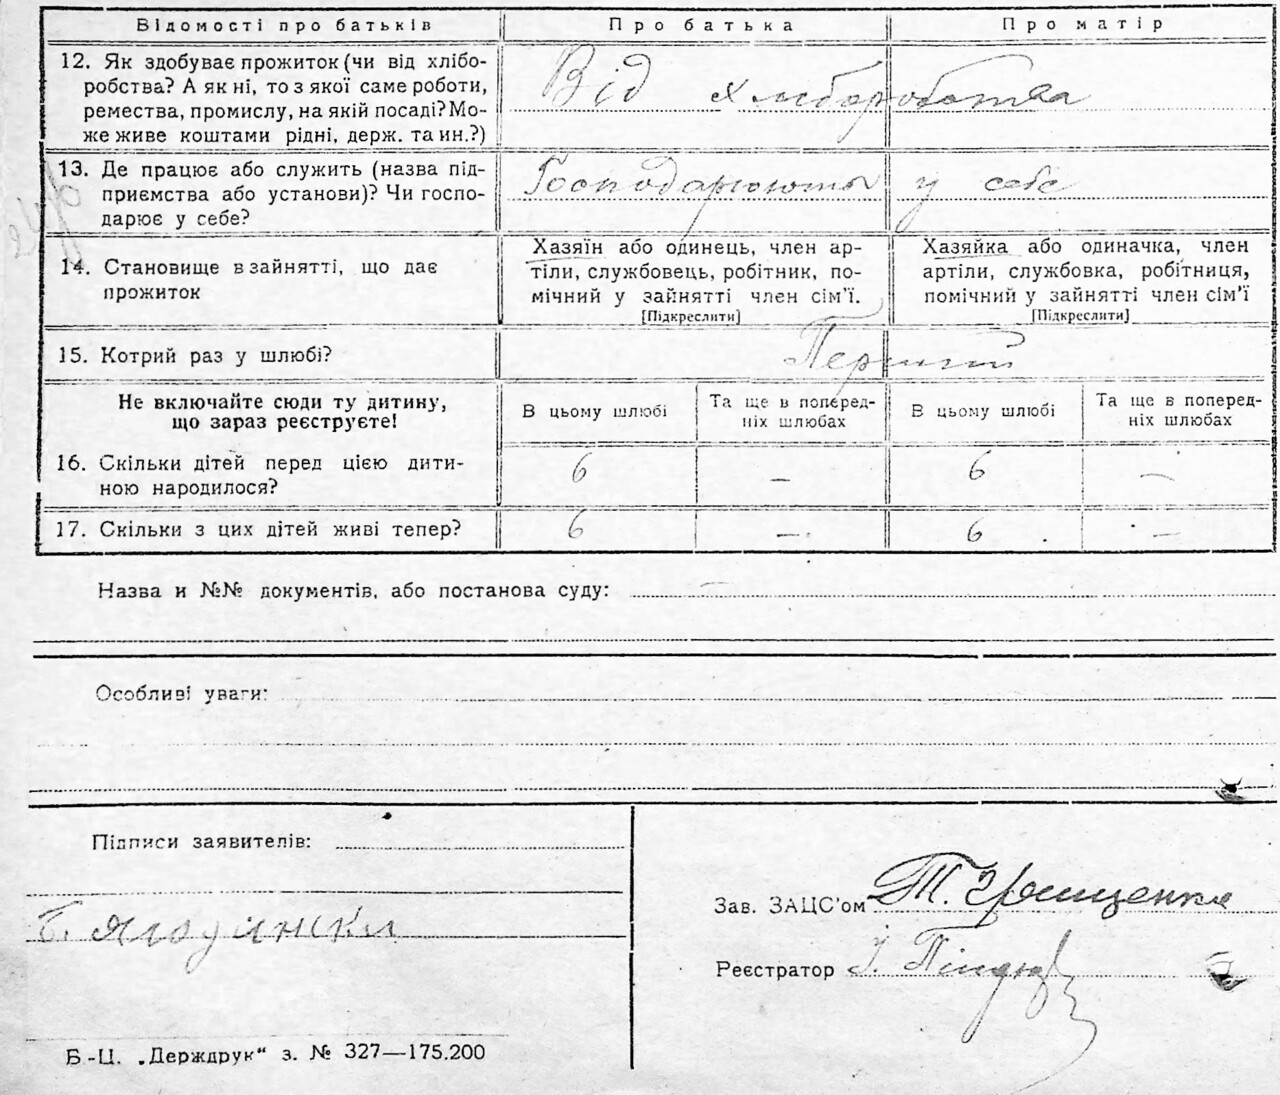 Відомості про батьків Про батька Про матір
12. Як здобуває прожиток (чи від хлібо-
робства? А як ні, то з якої саме роботи,
ремества, промислу, на якій посаді? Мо-
же живе коштами рідні, держ. та ин.?)
Від хліборобства
13. Де працює або служить (назва під-
приємства або установи)? Чи госпо-
дарює у себе?
Господарюють у себе
14. Становище в зайнятті, що дає
прожиток
Хазяїн або одинець, член ар-
тіли, службовець, робітник, по-
мічний у зайнятті член сім'ї.
[Підкреслити]
Хазяйка або одиначка, член
артіли, службовка, робітниця,
помічний у зайнятті член сім'ї
[Підкреслити]
15. Котрий раз у шлюбі? Перший
Не включайте сюди ту дитину,
що зараз реєструєте!
В цьому шлюбі
Та ще в поперед-
ніх шлюбах
В цьому шлюбі
Та ще в поперед-
ніх шлюбах
16. Скільки дітей перед цією дити-
ною народилося?
6 — 6 —
17. Скільки з цих дітей живі тепер? 6 — 6 —
Назва и №№ документів, або постанова суду:
Особливі уваги:
Підписи заявителів:
Зав. ЗАЦС'ом Т. Грищенко
Реєстратор І.
Б-Ц. „Держдрук“ з. № 327—175.200